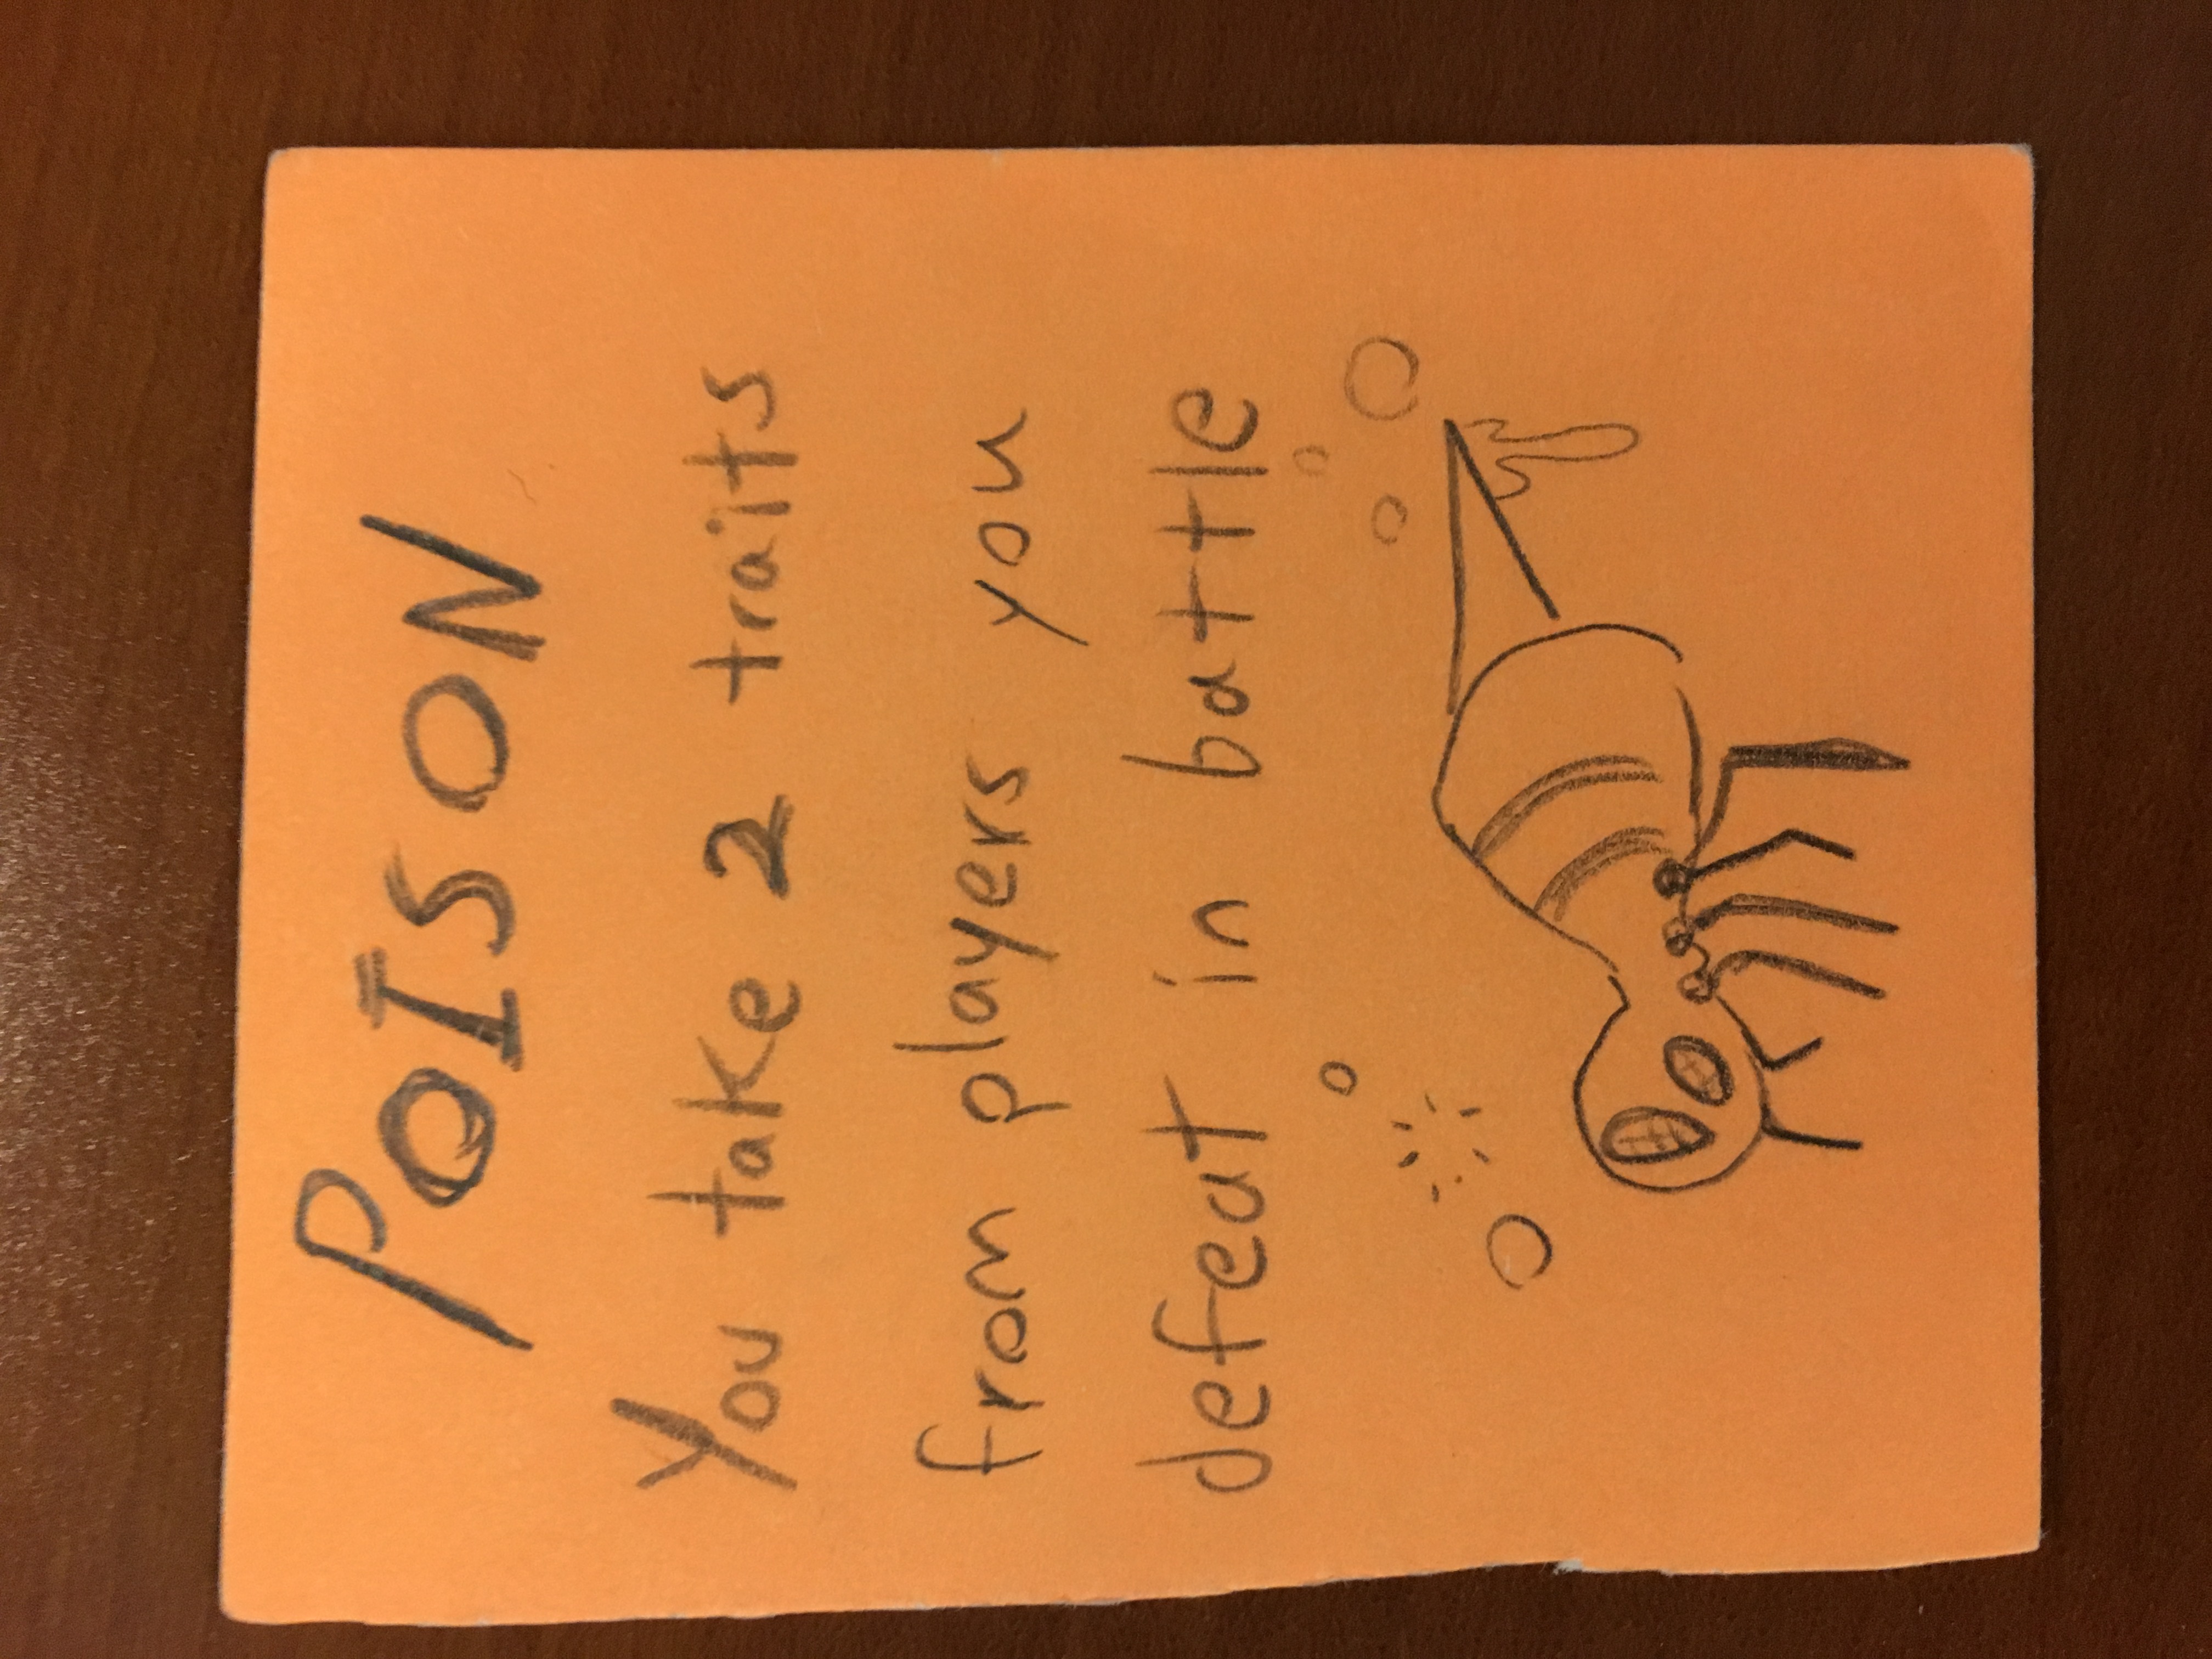 POISON
You take 2 traits
from players you
defeat in battle